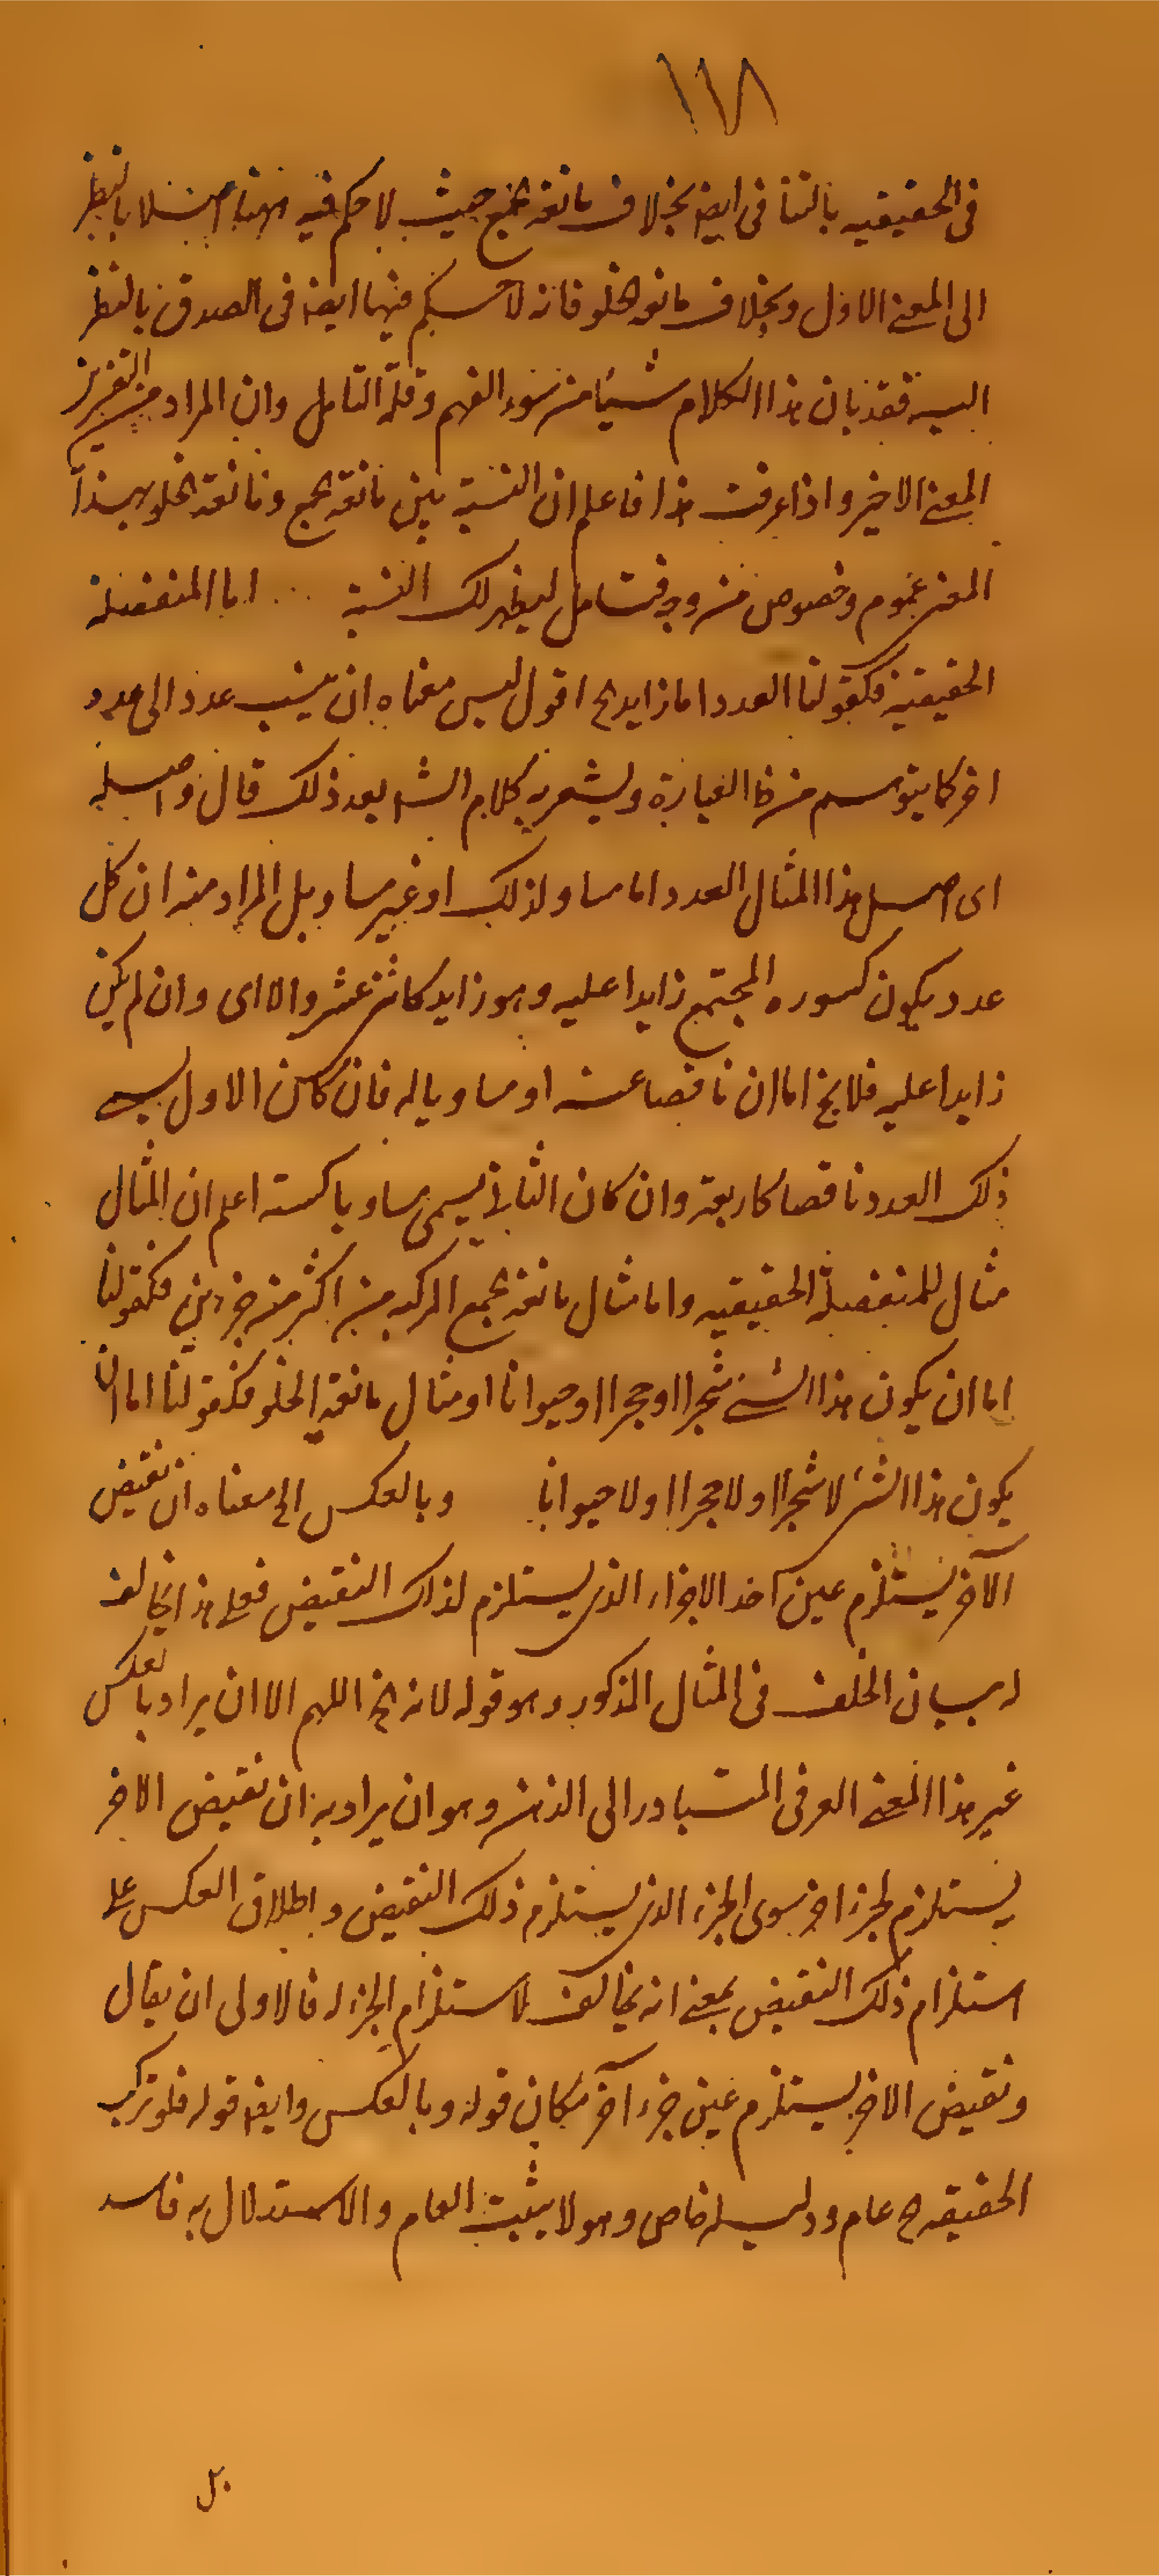 ١١٨
فى الحقيقيه بالتنافى ايضا بخلاف مانعه الجمع حيث لا حكم فيه ههنا اصلا بالنظر
الى المعنى الاول وبخلاف مانعه الخلو فانه لا حكم فيها ايضا فى الصدق بالنظر
اليه فقد بان هذا الكلام شيئا من سوء الفهم وقلة التامل وان المراد من
المعنى الاخير واذا عرفت هذا فاعلم ان النسبة بين مانعة الجمع ومانعة الخلو بهذا
المعنى عموم وخصوص من وجه فتامل ليظهر لك النسبة ... اما المنفصلة
الحقيقية فكقولنا العدد اما زايد الخ اقول ليس معناه ان ينسب عدد الى عدد
اخر كما يتوهم من ظ العبارة ويشعر به كلام الش بعد ذلك قال واصله
اى اصل هذا المثال العدد اما مساو لذلك او غير مساو بل المراد منه ان كل
عدد يكون كسوره المجتمع زايدا عليه وهو زايد كاثنى عشر والا اى وان لم يكن
زايدا عليه فلا يخ اما ان ناقصا عنه او مساويا له فان كان الاول يسمى
ذلك العدد ناقصا كاربعة وان كان الثانى يسمى مساويا كستة اعلم ان المثال
مثال للمنفصلة الحقيقيه واما مثال مانعة الجمع المركبه من اكثر من جزءين فكقولنا
اما ان يكون هذا الشئ شجرا او حجرا او حيوانا او مثال مانعة الخلو فكقولنا اما ان
يكون هذا الشئ لا شجرا او لا حجرا او لا حيوانا وبالعكس الخ معناه ان نقيض
الآخر يستلزم عين احد الاجزاء الذى يستلزم لذاك النقيض فعلى هذا يخالف
له بيان الخلف فى المثال المذكور وهو قوله لانه الخ اللهم الا ان يراد بالعكس
غير هذا المعنى العرفى المتبادر الى الذهن وهو ان يراد به ان نقيض الاخر
يستلزم لجزء اخر سوى الجزء الذى يستلزم ذلك النقيض واطلاق العكس على
استلزام ذلك النقيض بمعنى انه يخالف لاستلزام الجزء له فالاولى ان يقال
ونقيض الاخر يستلزم عين جزء آخر مكان قوله وبالعكس وايضا قوله فلو تركب
الحقيقه ح عام ودليله خاص وهو لا يثبت العام والاستدلال به فاسد
بل